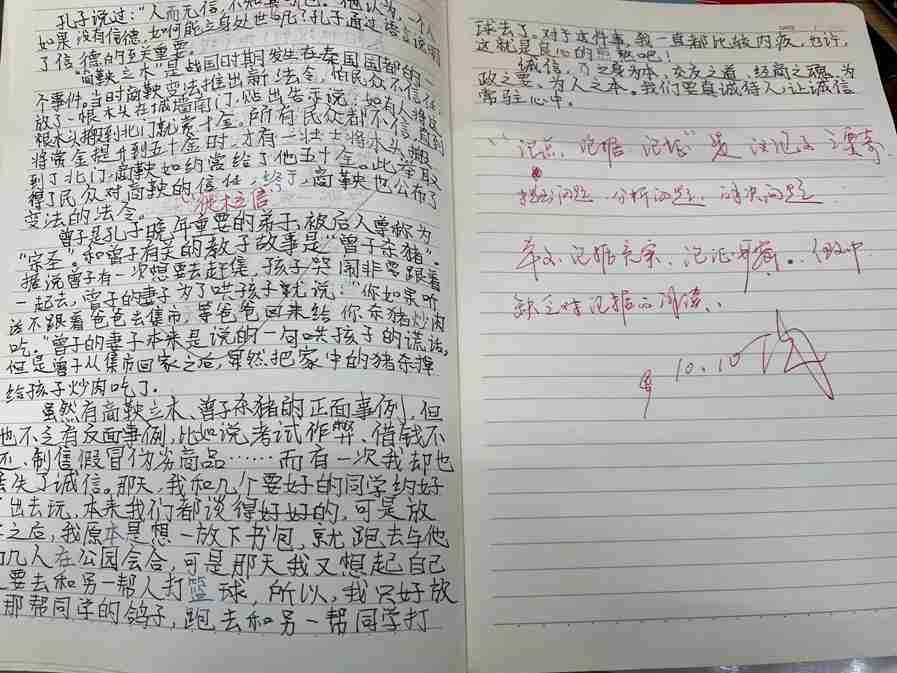 孔子说过："人而无信,不知其可也。"他认为,一个人
如果没有信德,如何能立身处世呢?孔子通过语言说明
了信德的至关重要。
"商鞅立木"是战国时期发生在秦国国都的一
个事件。当时商鞅变法推出新法令,怕民众不信任,
放了一根木头在城墙南门,贴出告示说:如有人将这
根木头搬到北门就赏十金。所有民众都不信,直到
将赏金提升到五十金时,才有一壮士将木头搬
到了北门,商鞅如约赏给了他五十金。此举取
得了民众对商鞅的信任,终于,商鞅也公布了
变法的法令。
"徙木立信
曾子是孔子晚年重要的弟子,被后人尊称为
"宗圣"。和曾子有关的教子故事是"曾子杀猪"。
据说曾子有一次想要去赶集,孩子哭闹非要跟着
一起去,曾子的妻子为了哄孩子就说:"你如果听
话不跟着爸爸去集市,等爸爸回来给你杀猪炒肉
吃。"曾子的妻子本来是说的一句哄孩子的谎话,
但是曾子从集市回家之后,果然把家中的猪杀掉
给孩子炒肉吃了。
虽然有商鞅立木、曾子杀猪的正面事例,但
也不乏有反面事例,比如说考试作弊、借钱不
还、制售假冒伪劣商品……而有一次我却也
丢失了诚信。那天,我和几个要好的同学约好
出去玩,本来我们都谈得好好的,可是放
之后,我原本是想一放下书包,就跑去与他
们几人在公园会合,可是那天我又想起自己
要去和另一帮人打篮球,所以,我只好放
那帮同学的鸽子,跑去和另一帮同学打
球去了。对于这件事,我一直都比较内疚,也许,
这就是良心的 吧!
诚信,乃立身为本,交友之道,经商之魂,为
政之要,为人之本。我们要真诚待人,让诚信
常驻心中。
"论点、论据、论证"是议论文三要素.
提出问题、分析问题、解决问题
本文论据充实、论证 。
缺乏对论据的阐述、
10.10